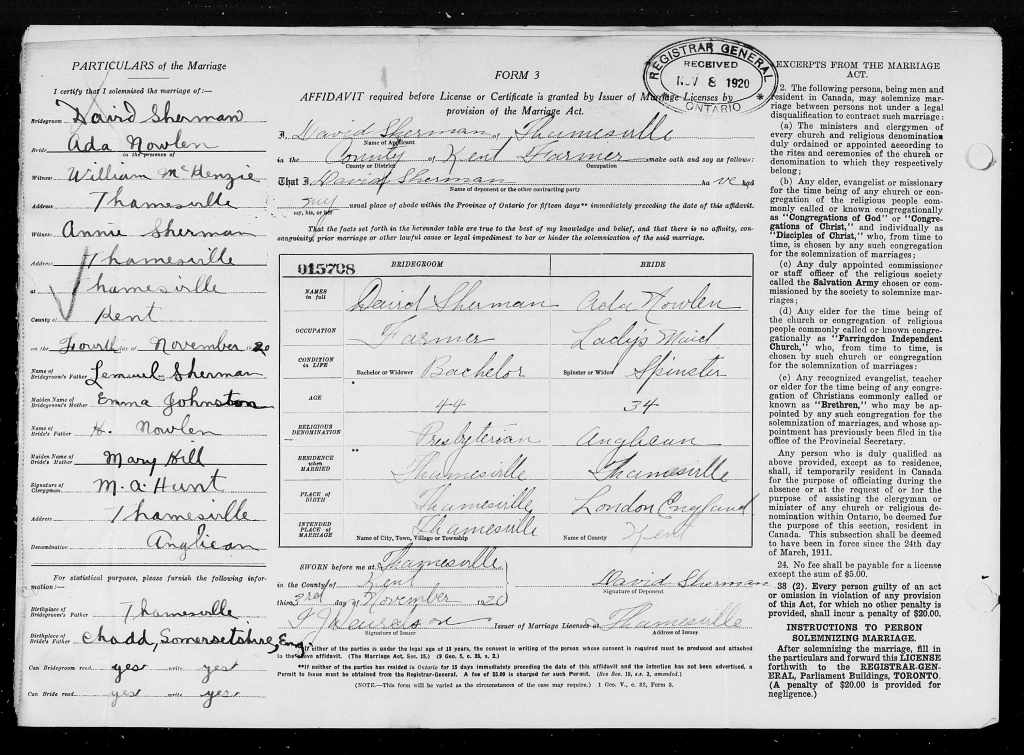 PARTICULARS of the Marriage
I certify that I solemnised the marriage of:—
Bridegroom David Sherman
Bride Ada Nowlen
in the presence of
Witness William McKenzie
Address Thamesville
Witness Annie Sherman
Address Thamesville
at Thamesville
County of Kent
on the Fourth day of November 1920
Name of Bridegroom's Father Lemuel Sherman
Maiden Name of Bridegroom's Mother Emma Johnston
Name of Bride's Father H. Nowlen
Maiden Name of Bride's Mother Mary Hill
Signature of Clergyman M. A. Hunt
Address Thamesville
Denomination Anglican
For statistical purposes, please furnish the following information:—
Birthplace of Bridegroom's Father Thamesville
Birthplace of Bride's Father Chadd, Somersetshire, Eng.
Can Bridegroom read yes write yes
Can Bride read yes write yes
FORM 3
AFFIDAVIT required before License or Certificate is granted by Issuer of Marriage Licenses by
provision of the Marriage Act.
REGISTRAR GENERAL
RECEIVED
NOV 8 1920
ONTARIO
I, David Sherman of Thamesville
Name of Applicant
in the County of Kent Farmer make oath and say as follows:
County or District Occupation
That I David Sherman have had
Name of deponent or the other contracting party
my usual place of abode within the Province of Ontario for fifteen days** immediately preceding the date of this affidavit.
my, his, or her
That the facts set forth in the hereunder table are to the best of my knowledge and belief, and that there is no affinity, consanguinity, prior marriage or other lawful cause or legal impediment to bar or hinder the solemnization of the said marriage.
015708 BRIDEGROOM BRIDE
NAMES in full David Sherman Ada Nowlen
OCCUPATION Farmer Lady's Maid
CONDITION in LIFE Bachelor or Widower Bachelor Spinster or Widow Spinster
AGE * 44 34
RELIGIOUS DENOMINATION Presbyterian Anglican
RESIDENCE when MARRIED ** Thamesville Thamesville
PLACE of BIRTH Thamesville London England
INTENDED PLACE of MARRIAGE Thamesville Kent
Name of City, Town, Village or Township Name of County
SWORN before me at Thamesville
in the County of Kent
this 3rd day of November 1920
David Sherman
Signature of Deponent
Signature of Issuer
Issuer of Marriage Licenses at Thamesville
Address of Issuer
*If either of the parties is under the legal age of 18 years, the consent in writing of the person whose consent is required must be produced and attached
to the above affidavit. (The Marriage Act, Sec. 15.) (9 Geo. 5, c. 35, s. 2.)
**If neither of the parties has resided in Ontario for 15 days immediately preceding the date of this affidavit and the intention has not been advertised, a
Permit to issue must be obtained from the Registrar-General. A fee of $5.00 is charged for such Permit. (See Sec. 19, s.s. 2, amended.)
(NOTE.—This form will be varied as the circumstances of the case may require.) 1 Geo. V., c. 32, Form 3.
EXCERPTS FROM THE MARRIAGE
ACT.
2. The following persons, being men and
resident in Canada, may solemnize mar-
riage between persons not under a legal
disqualification to contract such marriage:
(a) The ministers and clergymen of
every church and religious denomination
duly ordained or appointed according to
the rites and ceremonies of the church or
denomination to which they respectively
belong;
(b) Any elder, evangelist or missionary
for the time being of any church or con-
gregation of the religious people com-
monly called or known congregationally
as "Congregations of God" or "Congre-
gations of Christ," and individually as
"Disciples of Christ," who, from time to
time, is chosen by any such congregation
for the solemnization of marriages;
(c) Any duly appointed commissioner
or staff officer of the religious society
called the Salvation Army chosen or com-
missioned by the society to solemnize mar-
riages;
(d) Any elder for the time being of
the church or congregation of religious
people commonly called or known congre-
gationally as "Farringdon Independent
Church," who, from time to time, is
chosen by such church or congregation
for the solemnization of marriages:
(e) Any recognized evangelist, teacher
or elder for the time being of any congre-
gation of Christians commonly called or
known as "Brethren," who may be ap-
pointed by any such congregation for the
solemnization of marriages, and whose ap-
pointment has previously been filed in the
office of the Provincial Secretary.
Any person who is duly qualified as
above provided, except as to residence,
shall, if temporarily resident in Canada
for the purpose of officiating during the
absence or at the request of or for the
purpose of assisting the clergyman or
minister of any church or religious de-
nomination within Ontario, be deemed for
the purpose of this section, resident in
Canada. This subsection shall be deemed
to have been in force since the 24th day
of March, 1911.
24. No fee shall be payable for a license
except the sum of $5.00.
38 (2). Every person guilty of an act
or omission in violation of any provision
of this Act, for which no other penalty is
provided, shall incur a penalty of $20.00.
INSTRUCTIONS TO PERSON
SOLEMNIZING MARRIAGE.
After solemnizing the marriage, fill in
the particulars and forward this LICENSE
forthwith to the REGISTRAR-GEN-
ERAL, Parliament Buildings, TORONTO.
(A penalty of $20.00 is provided for
negligence.)